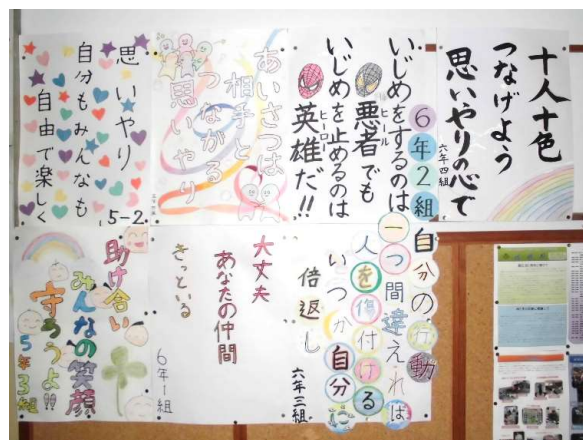 十人十色
つなげよう
思いやりの心で
六年四組
6年2組
いじめをするのは
ヒール
悪者でも
いじめを止めるのは
ヒーロー
英雄だ!!
あいさつは
相手と
つながる
思いやり
思いやり
自分もみんなも
自由で楽しく
5-2
自分の行動
一つ間違えれば
人を傷付ける
いつか自分に
倍返し
六年三組
大丈夫
あなたの仲間
きっといる
6年1組
助け合い
みんなの笑顔
守ろうよ!!
5年3組